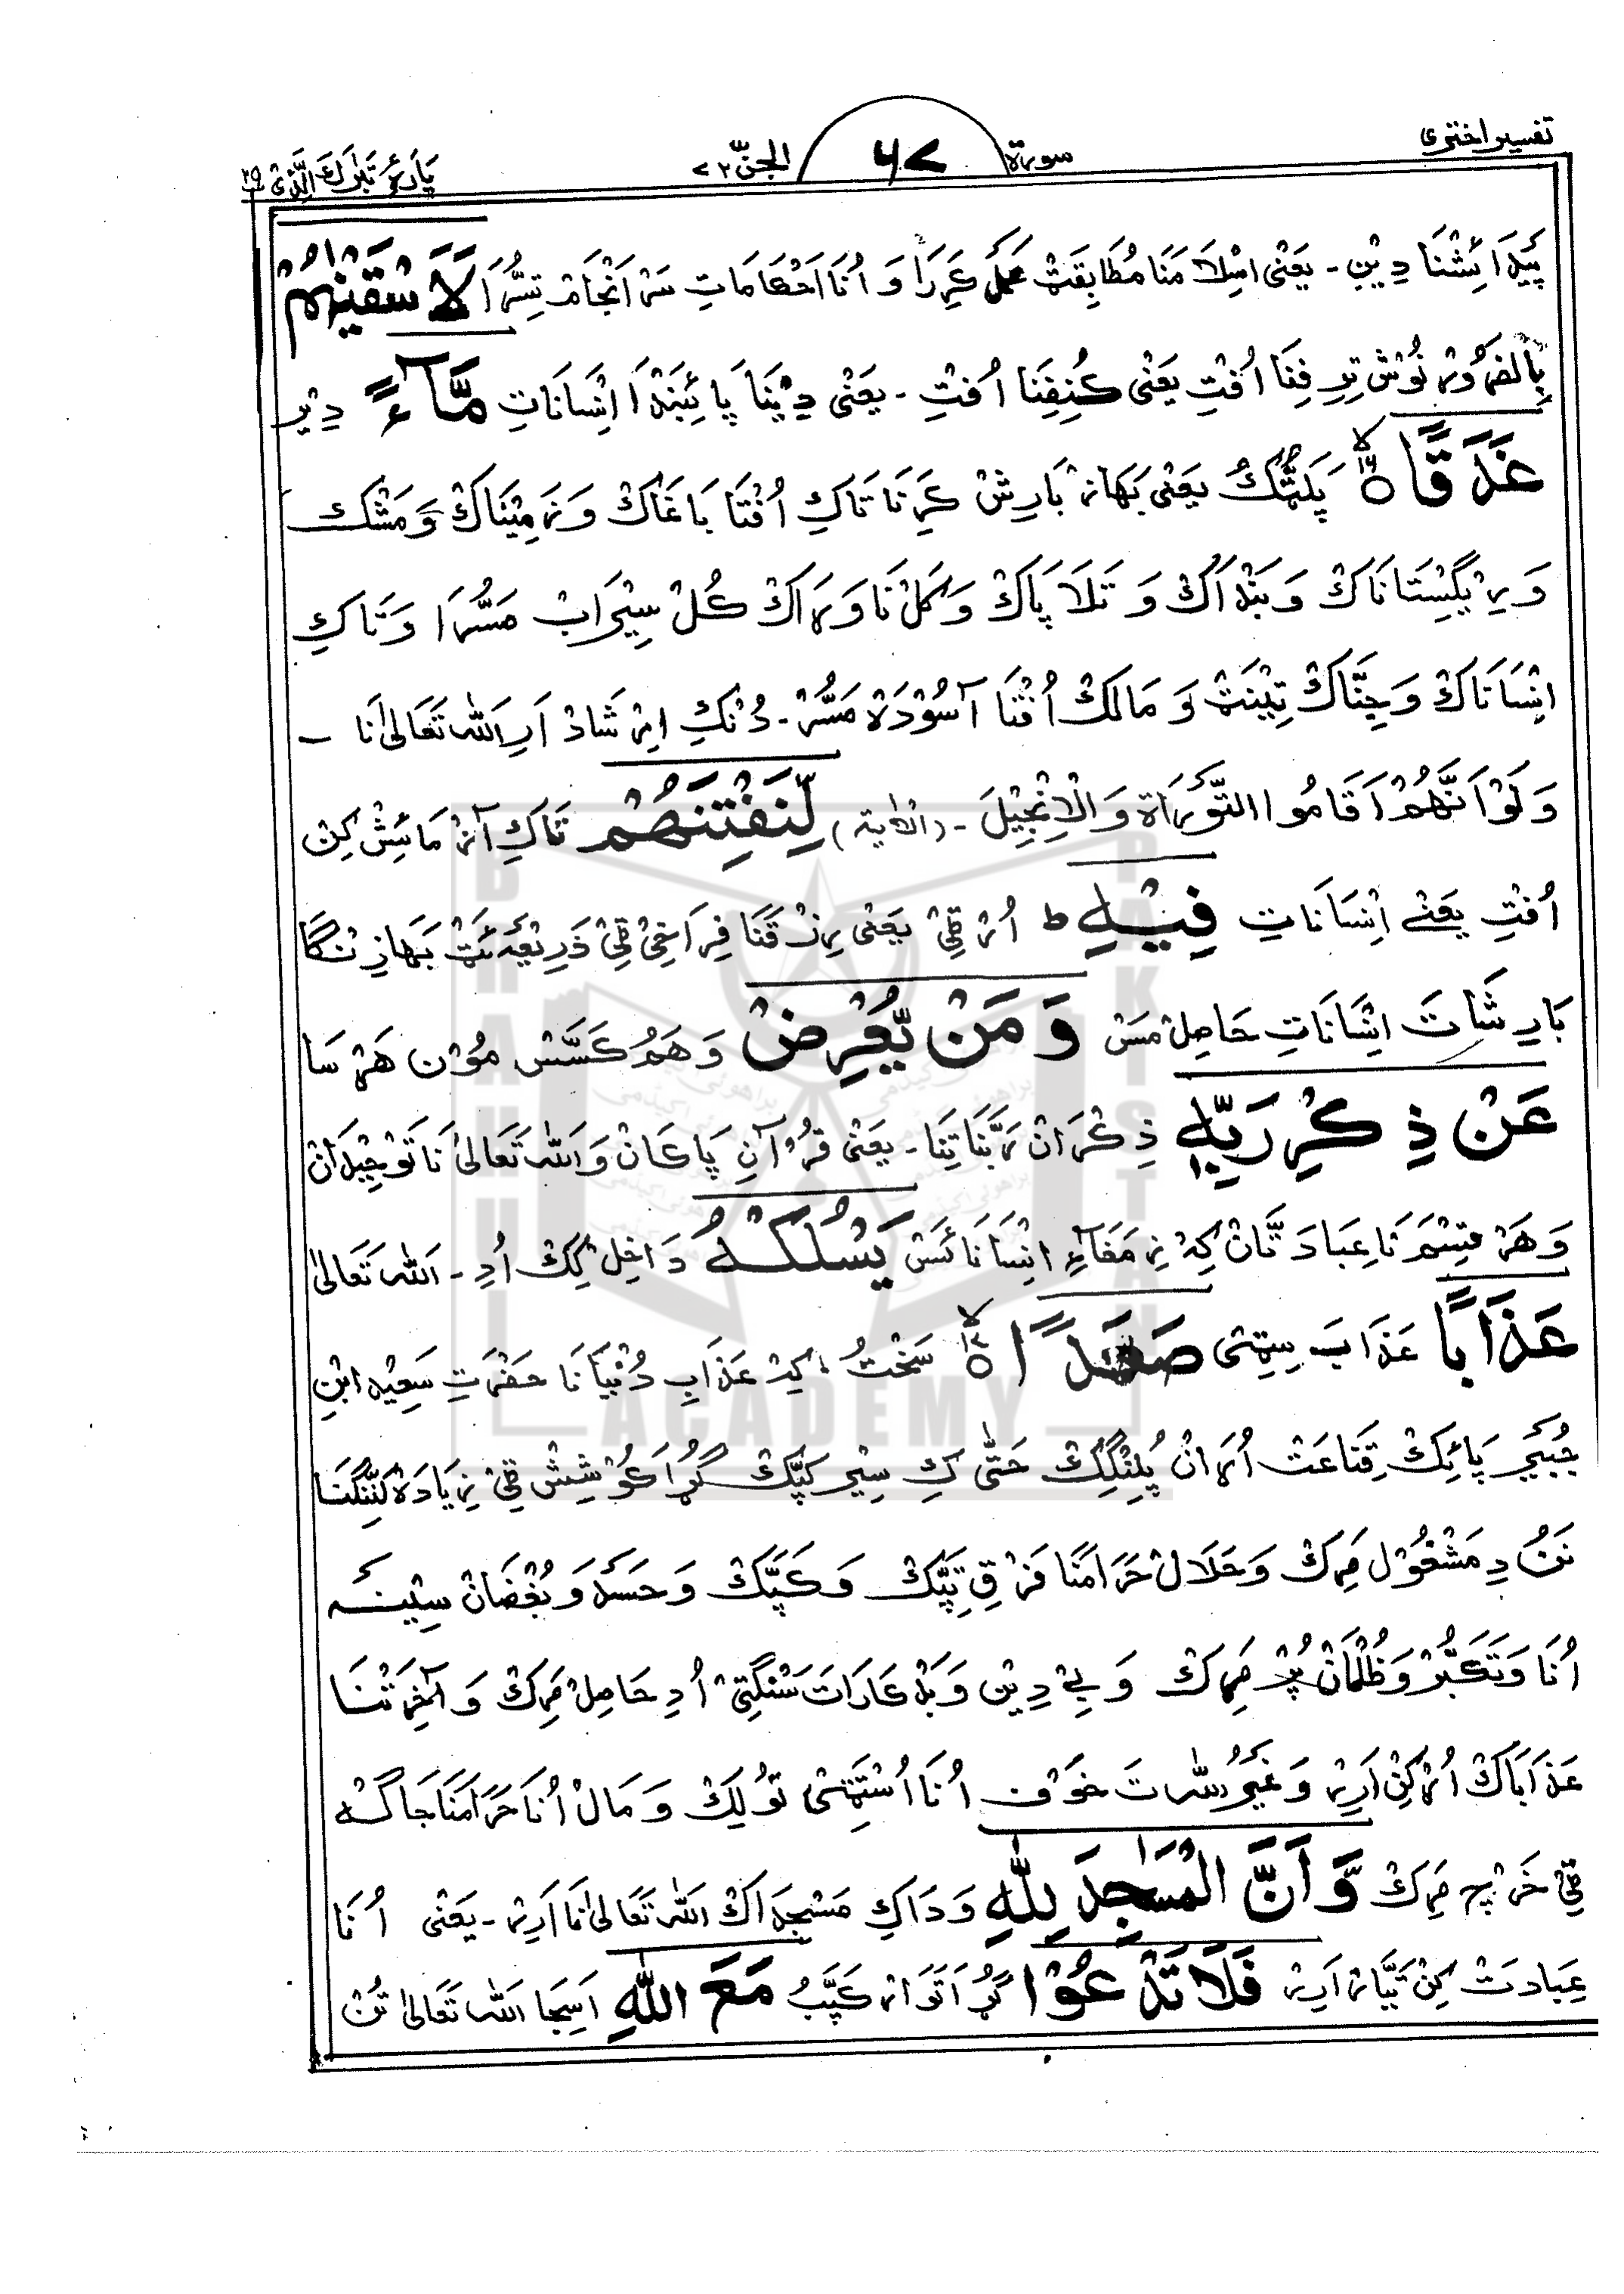 تفسیر اختری
سورة ٦٧ الجنّ ٧٢
پَارَهُ تَبٰرَكَ الَّذِیْ ٢٩
پَیْدَائِشْنَا دِیْنِ ـ یَعْنٰی اِسْلَامَنَا مُطَابِقَتْ عَمَلْ کَرِرَا وَ اُنَا اَحْکَامَاتِ سَرْاَنْجَامْ تِسُّرَا لَاَسْقَیْنٰهُمْ
بِالضَّرُوْرْ نُوْشْ تِرِفِنَا اُفْتِ یَعْنٰی کُنِفِنَا اُفْتِ ـ یَعْنٰی دِیْنَا پَائِبَنْدَا اِنْسَانَاتِ مَّآءً دِیْرِ
غَدَقًا ۝ پَلَنْگُ یَعْنٰی بَهَازْ بَارِشْ کَرِنَا تَاکِ اُفْتَا بَاغَاكْ وَ زَمِیْنَاكْ وَ مَشْكْ
وَ رِیْگِسْتَانَاكْ وَ بَنْدَاكْ وَ تَلَاپَاكْ وَ کَلْنَاوَرَاكْ کُلْ سِیْرَابْ مَسُّرَا وَ تَاکِ
اِنْسَانَاكْ وَ جِنَّاكْ تِیْنَتْ وَ مَالَكْ اُفْتَا آسُوْدَهْ مَسُّرْ ـ دُنْکِ اِرْشَادْ اَرِ اَللّٰهْ تَعَالٰی نَا ـ
وَلَوْ اَنَّهُمْ اَقَامُوا التَّوْرَاةَ وَالْاِنْجِیْلَ ـ (الآیة) لِّنَفْتِنَهُمْ تَاکِ آزْمَائِشْ کِنْ
اُفْتِ یَعْنٰے اِنْسَانَاتِ فِیْهِ ط اُرْٹِیْ یَعْنٰی رِزْقَنَا فِرَاخِیْ ٹِیْ ذَرِیْعَہ ئَٹْ بَهَازِنْگَا
بَارِشَاتَ اِنْسَانَاتِ حَاصِلْ مَسْ وَ مَنْ یُّعْرِضْ وَ هَمُ کَسَّسْ مُوْنْ هَرْسَا
عَنْ ذِکْرِ رَبِّهٖ ذِکْرَانْ رَبَّنَا تِنَا ـ یَعْنٰی قُرْآنِ پَاکَانْ وَ اَللّٰهْ تَعَالٰی نَا تَوْحِیْدَانْ
وَ هَرْ قِسْمَ نَا عِبَادَتَّانْ کِہْ زِمَّه غَاءِ اِنْسَانَائَسْ یَسْلُكْهُ دَاخِلْ کِكْ اُدِ ـ اَللّٰهْ تَعَالٰی
عَذَابًا عَذَابَ سِٹِی صَعَدًا ۝ سَخْتُ، کِہْ عَذَابِ دُنْیَا نَا حَضْرَتِ سَعِیْدْ اِبْنِ
جُبَیْرِ پَائِكْ قِنَاعَتْ اُرَانْ پِلِنْگِكْ حَتّٰی کِ سِیْرْ کَپَّكْ گُڑَا کَوْشِشْ ٹِیْ زِیَادَهْ کَنِّنْگَنَا
نَنْ دِ مَشْغُوْلْ مَرِكْ وَ حَلَالْ حَرَامَنَا فَرْقِ تِپَّكْ وَ کَپَّكْ وَ حَسَدْ وَ بُغْضَانْ سِیْنَہ
اُنَا وَ تَکَبُّرْ وَ ظُلْمَانْ پُرْ مَرِكْ وَ بِیْ دِیْنْ وَ بَدْکَارَاتَ سَنْگَتِیْ اُدِ حَاصِلْ مَرِكْ وَ آخِرَتْنَا
عَذَابَاكْ اُرْکِنْ اَرِرْ وَ غَیْرُ اللّٰهْ تَ خَوْفْ اُنَا اُسْتَٹِیْ تُوْلِكْ وَ مَالْ اُنَا حَرَامَنَا جَاگَہ
ٹِیْ خَرْچْ مَرِكْ وَّ اَنَّ الْمَسٰجِدَ لِلّٰهِ وَ دَاکِ مَسْجِدَاكْ اَللّٰهْ تَعَالٰی نَا اَرِرْ ـ یَعْنٰی اُنَا
عِبَادَتْ کِنْ تَیَّارْ اَرِرْ فَلَا تَدْعُوْا گُڑَا تَوَارْ کَپَّبُ مَعَ اللّٰهِ اَسِجَا اَللّٰهْ تَعَالٰی تُنْ
BRAHUI
ACADEMY
PAKISTAN